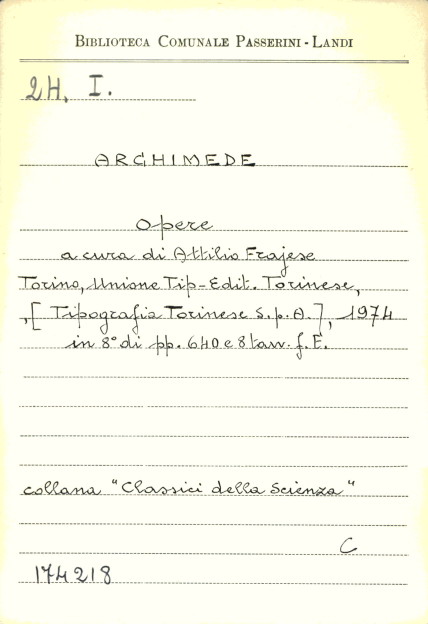 BIBLIOTECA COMUNALE PASSERINI - LANDI
2H. I.
ARCHIMEDE
Opere
a cura di Attilio Frajese
Torino, Unione Tip-Edit. Torinese,
,[ Tipografia Torinese S.p.A.], 1974
in 8° di pp. 640 e 8 tav. f. T.
collana "Classici della Scienza"
C
174218